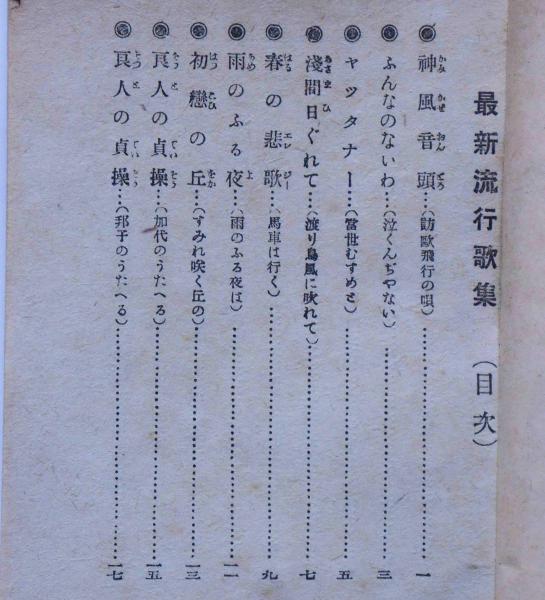 最新流行歌集（目次）
◉神風音頭…（訪歐飛行の唄）…一
◉ふんなのないわ…（泣くんぢやない）…三
◉ヤッタナー…（當世むすめと）…五
◉淺間日ぐれて…（渡り鳥風に吹れて）…七
◉春の悲歌…（馬車は行く）…九
◉雨のふる夜…（雨のふる夜は）…一一
◉初戀の丘…（すみれ咲く丘の）…一三
◉良人の貞操…（加代のうたへる）…一五
◉良人の貞操…（邦子のうたへる）…一七